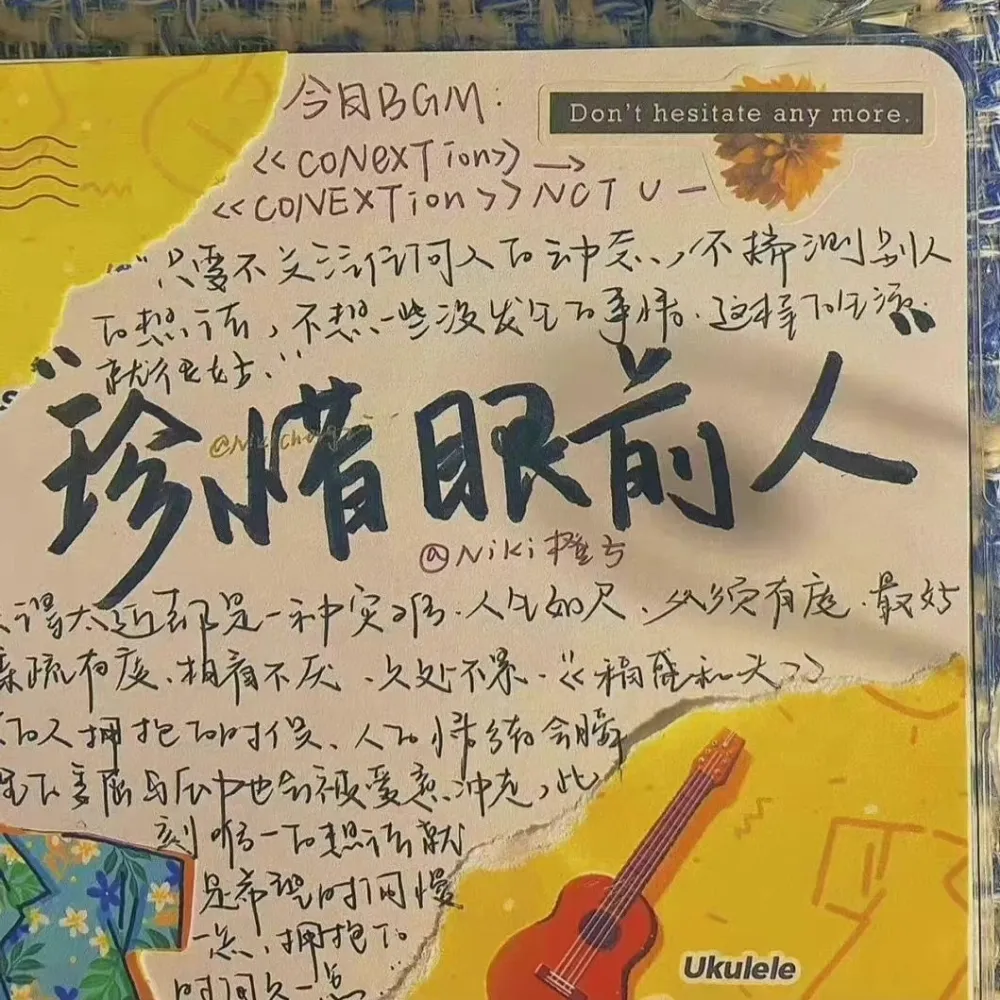 今日BGM:
Don't hesitate any more.
<<CONEXTion>>→
<<CONEXTion>>NCT U—
"只要不关注任何人的动态,不揣测别人
的想法,不想一些没发生的事情.这样的生活
就很好."
"珍惜眼前人"
@Niki橙兮
得太近都是一种灾难.人生如尺,必须有度.最好
亲疏有度、相看不厌、久处不累.《稻盛和夫》
的人拥抱的时候、人的情绪会瞬
也会被爱意冲走,此
刻唯一的想法就
是希望时间慢
一点,拥抱的
时间久一点..
Ukulele